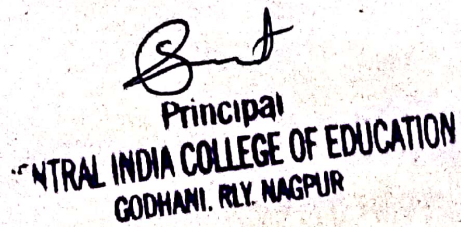 Principal
ENTRAL INDIA COLLEGE OF EDUCATION
GODHANI. RLY. NAGPUR